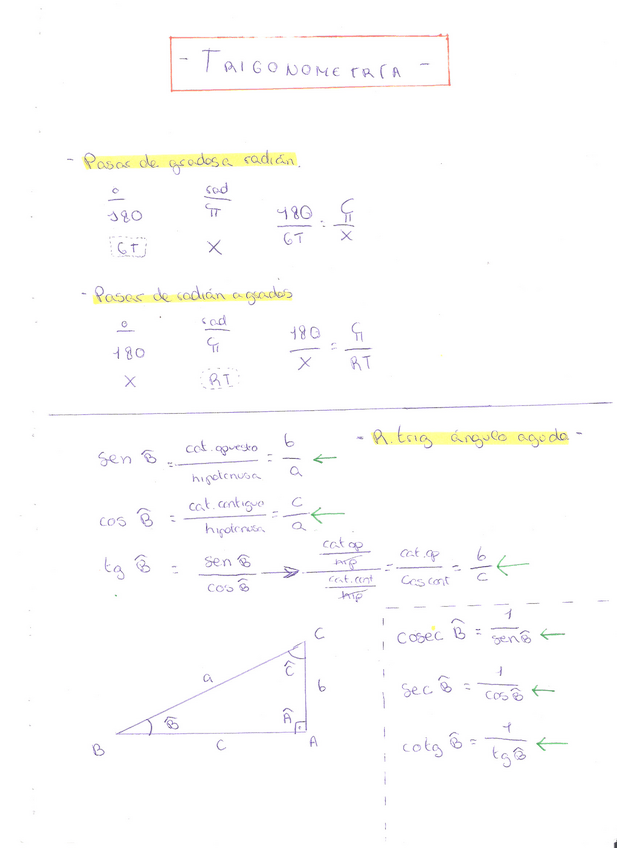 - TRIGONOMETRÍA -
- Pasar de grados a radián.
o rad
180 π 180/GT = π/X
GT X
- Pasar de radián a grados
o rad
180 π 180/X = π/RT
X RT
- R. trig ángulo agudo -
sen B̂ = cat. opuesto/hipotenusa = b/a ←
cos B̂ = cat. contiguo/hipotenusa = c/a ←
tg B̂ = sen B̂/cos B̂ → (cat op/hip)/(cat. cont/hip) = cat. op/cat cont = b/c ←
cosec B̂ = 1/sen B̂ ←
sec B̂ = 1/cos B̂ ←
cotg B̂ = 1/tg B̂ ←
C
Ĉ
a b
B̂ Â
B C A